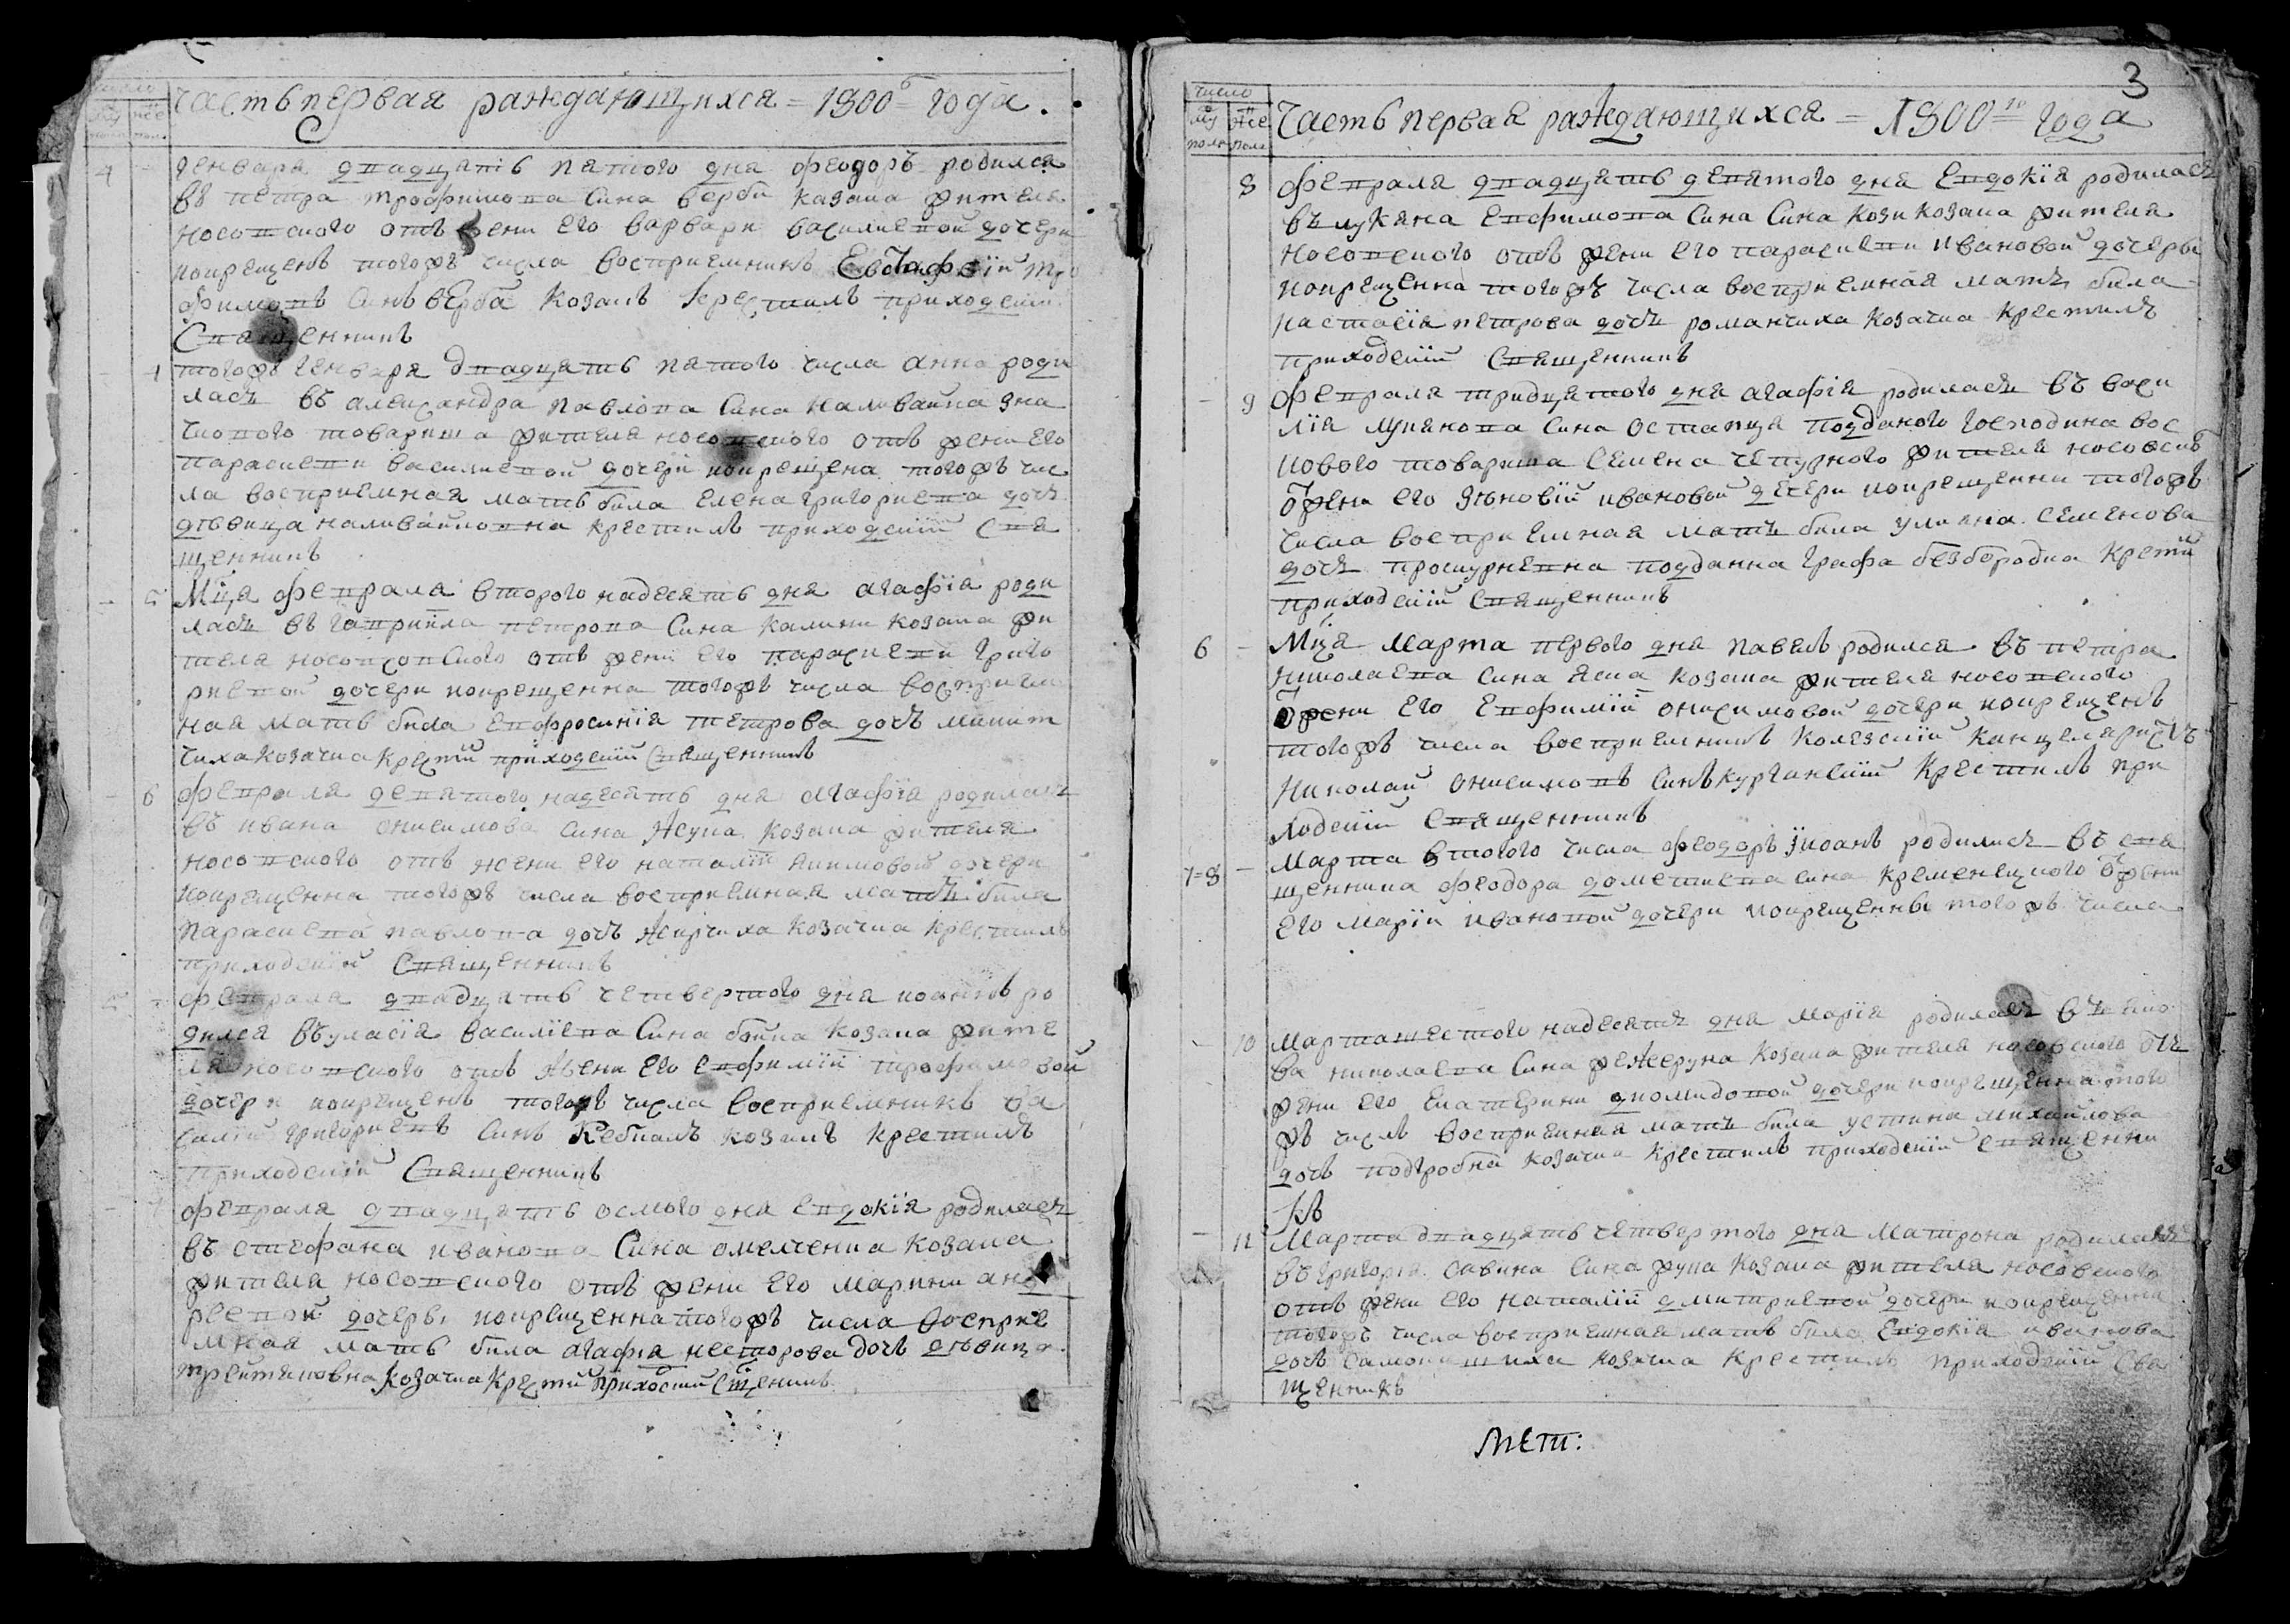 Часть первая раждающихся = 1800го года.
число
му же
полъ полъ
4 Генваря двадцять пятого дня Феодоръ родился
въ Петра Трофимова сина Верби козака жителя
носовского отъ жени его Варвари Василиевой дочери
покрещенъ тогожъ числа восприемникъ Евстафий Тро
фимовъ синъ Верба козакъ крестилъ приходский
священникъ
тогожъ генваря двадцять пятого числа Анна роди
лась въ Александра Павлова сина Наливайка зна
чкового товариша жителя носовского отъ жени его
Параскевии Василиевой дочери покрещена тогожъ чис
ла восприемная мать била Елена Григориева дочь
дѣвица Наливайковна крестилъ приходский свя
щенникъ
5 Мца февраля второго надесять дня Агафїя роди
лась въ Гавриила Петрова сина Калини козака жи
теля носовского отъ жени его Параскевии Григо
риевой дочери покрещенна тогожъ числа восприем
ная мать била Евфросинїя Петрова дочь
козачка крестил приходский священникъ
6 февраля девятого надесять дня Агафїя родилась
въ Ивана Онисимова сина козака жителя
носовского отъ жени его Наталїи Якимовой дочери
покрещенна тогожъ числа восприемная мать била
Параскева Павлова дочь козачка крестилъ
приходский священникъ
5 февраля двадцять четвертого дня Иоаннъ ро
дился въ Власїя Василїева сина козака жите
ля носовского отъ жени его Евфимїи Трофимовой
дочери покрещенъ тогожъ числа восприемникъ Ва
силий Григориевъ синъ козакъ крестилъ
приходский священникъ
7 февраля двадцять осмого дня Евдокїя родилась
въ Стефана Иванова сина Омелченка козака
жителя носовского отъ жени его Марини Анд
реевой дочеры покрещенна тогожъ числа восприе
мная мать била Агафия Несторова дочь дѣвица
козачка крестил приходский сщенникъ
3
Часть первая раждающихся = 1800го года
число
му же
полъ полъ
8 февраля двадцять девятого дня Евдокїя родилась
въ Лукяна Евфимова сина сина Кози козака жителя
носовского отъ жени его Параскевии Ивановой дочеры
покрещенна тогожъ числа восприемная мать била
Настасїя Петрова дочь Романчиха козачка крестилъ
приходский священникъ
9 февраля тридцятого дня Агафїя родилась въ Васи
лїя Лукянова сина Остапця подданого господина вос
кового товариша Семена Чепурного жителя носовско
ѡ жени его Зѣновїи Ивановой дочери покрещенни тогожъ
числа восприемная мать била Улияна Семенова
дочь подданна графа Безбородка крестил
приходский священникъ
6 Мца марта первого дня Павелъ родился въ Петра
Николаева сина козака жителя носовского
ѡ жени его Евфимїи Онисимовой дочери покрещенъ
тогожъ числа восприемникъ колезский канцеляристъ
Николай Онисимовъ синъ Курганский крестилъ при
ходский священникъ
7=8 Марта второго числа Феодоръ Їиоанъ родились въ свя
щенника Феодора Дометиева сина Кременецкого ѡ жени
его Марїи Ивановой дочери покрещенны тогожъ числа
10 Марта шестого надесять дня Марїя родилась въ Яко
ва Николаева сина козака жителя носовского отъ
жени его Екатерини Диомидовой дочери покрещенна того
жъ числѣ восприемная мать била Устина Михайлова
дочь козачка крестилъ приходский священни
къ
11 Марта двадцять четвертого дня Матрона родилась
въ Григорїя Савина сина козака жителя носовского
отъ жени его Наталїи Дмитриевой дочери покрещенна
тогожъ числа восприемная мать била Евдокїя Иванова
дочь козачка крестилъ приходский свя
щенникъ
мет: